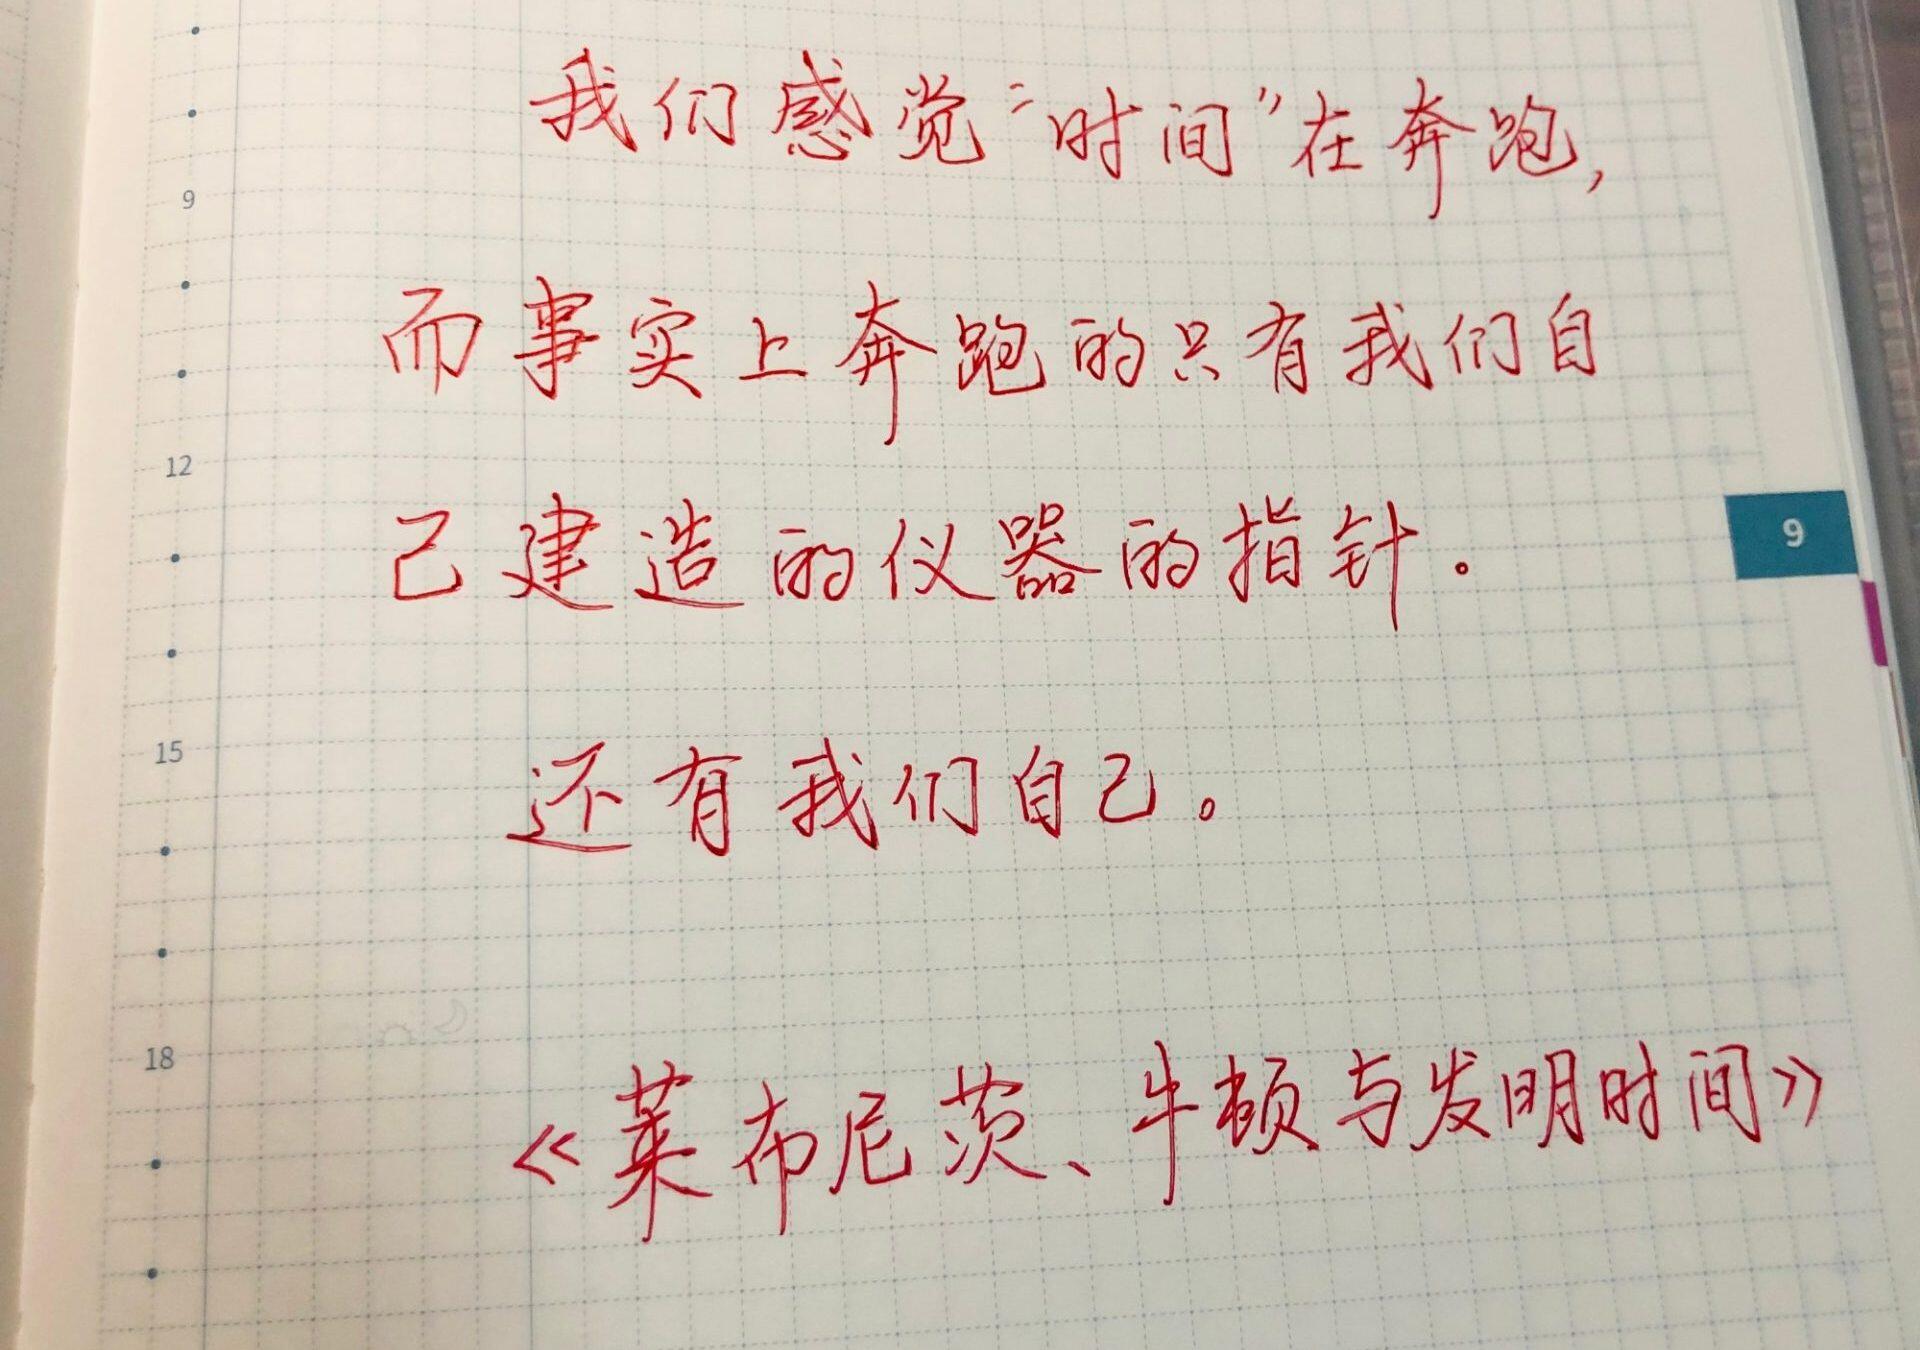 我们感觉“时间”在奔跑，
9
而事实上奔跑的只有我们自
12
己建造的仪器的指针。
9
15
还有我们自己。
18
《莱布尼茨、牛顿与发明时间》